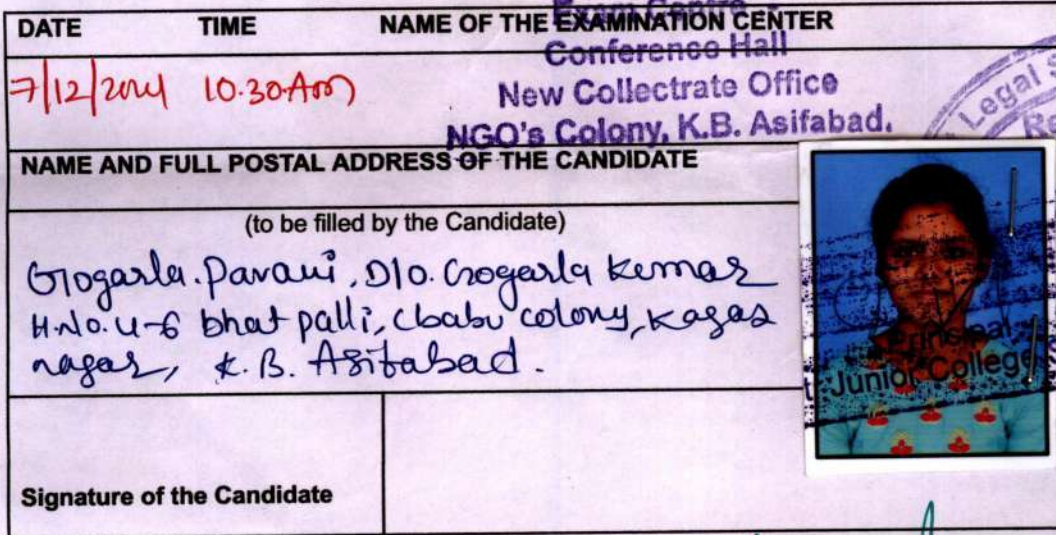 DATE TIME NAME OF THE EXAMINATION CENTER
Exam Centre -
Conference Hall
7/12/2024 10.30 Am New Collectrate Office
NGO's Colony, K.B. Asifabad.
Legal S
NAME AND FULL POSTAL ADDRESS OF THE CANDIDATE
(to be filled by the Candidate)
Gogarla. Pavani, D/o. Gogarla Kumar
H.No. 4-6 bhat palli, cbabu colony, Kagaz
nagar, K.B. Asifabad.
Principal
Junior College
Signature of the Candidate